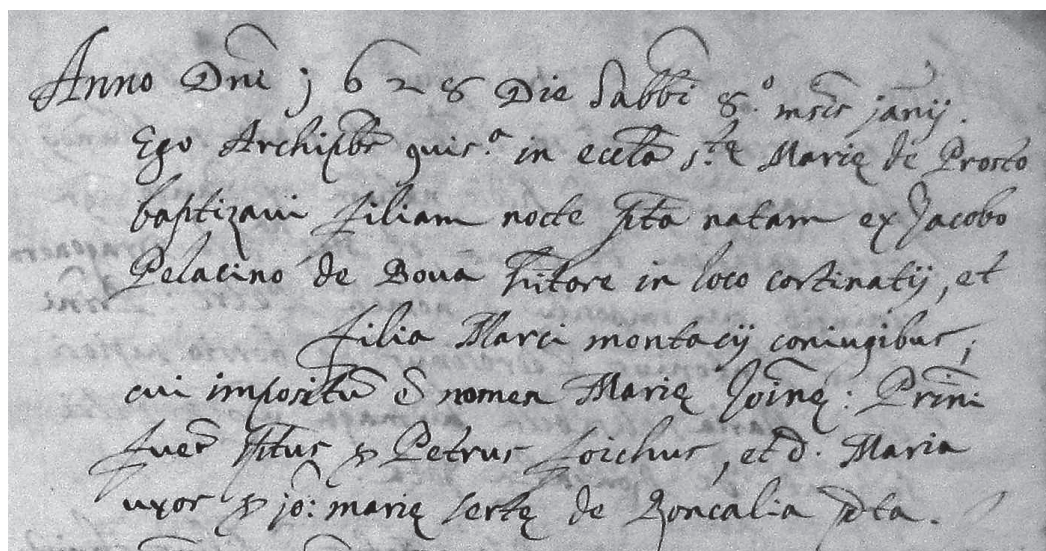 Anno Dni j628 Die Sabbi 8.° mscis janij.
Ego Archipbr quis.a in eccta s.tę Marię de Prosto
baptizaui filiam nocte pita natam ex Jacobo
Pelacino de Boua hitore in loco cortinatij, et
filia Marci montacij coniugibus;
cui impositu e nomen Marię Joinę: Prini
fuer pitus Petrus foichus, et d. Maria
uxor jo: marię sertę de Roncalia pta.